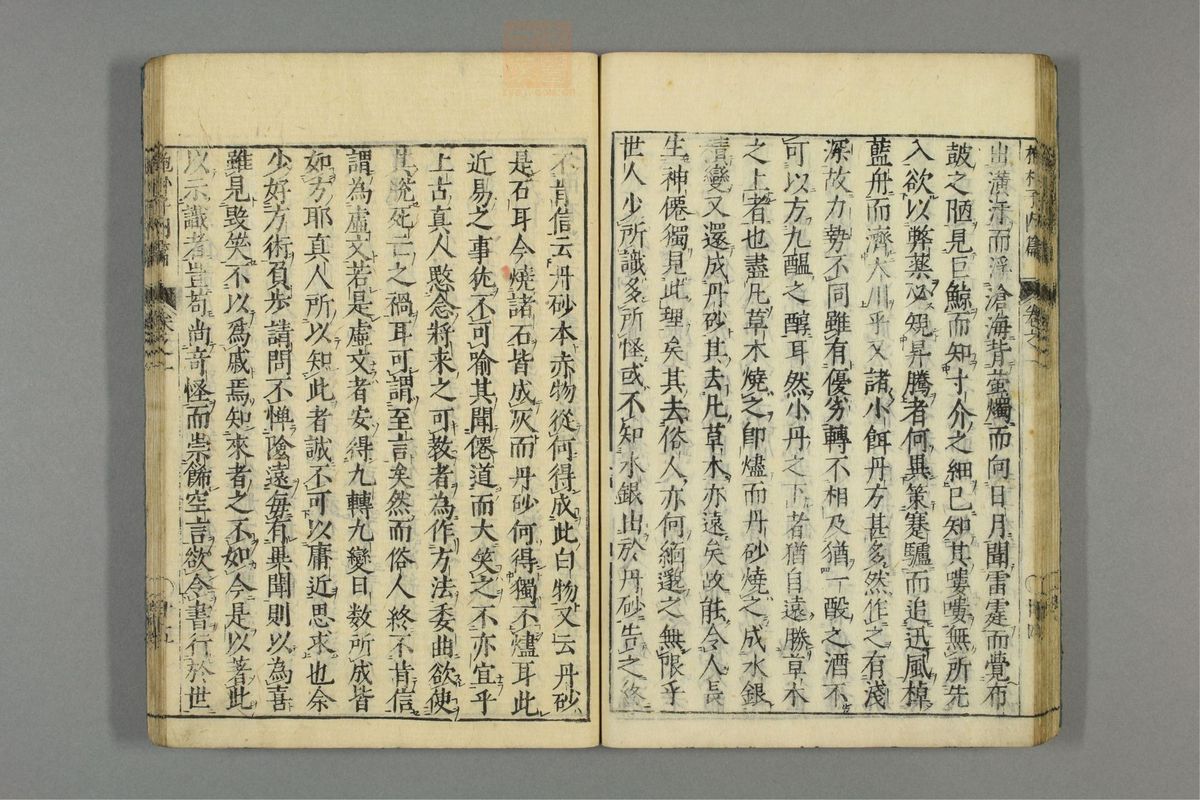 出潢汙而浮滄海背螢燭而向日月聞雷霆而覺布
皷之陋見巨鯨而知寸介之細已知其嘍嘍無所先
入欲以弊藥必規昇騰者何異策蹇驢而追迅風棹
藍舟而濟大川乎又諸小餌丹方甚多然作之有淺
深故力勢不同雖有優劣轉不相及猶一酘之酒不
可以方九醞之醇耳然小丹之下者猶自遠勝草木
之上者也盡凡草木燒之即燼而丹砂燒之成水銀
積變又還成丹砂其去凡草木亦遠矣故能令人長
生神僊獨見此理矣其去俗人亦何緬邈之無限乎
世人少所識多所怪或不知水銀出於丹砂告之終
不肯信云丹砂本赤物從何得成此白物又云丹砂
是石耳今燒諸石皆成灰而丹砂何得獨不燼耳此
近易之事猶不可喻其聞僊道而大笑之不亦宜乎
上古真人愍念將来之可教者為作方法委曲欲使
其脱死亡之禍耳可謂至言矣然而俗人終不肯信
謂為虛文若是虛文者安得九轉九變日数所成皆
如方耶真人所以知此者誠不可以庸近思求也余
少好方術負步請問不憚險遠毎有異聞則以為喜
雖見毀笑不以爲戚焉知來者之不如今是以著此
以示識者豈苟尚竒怪而崇飾空言欲令書行於世